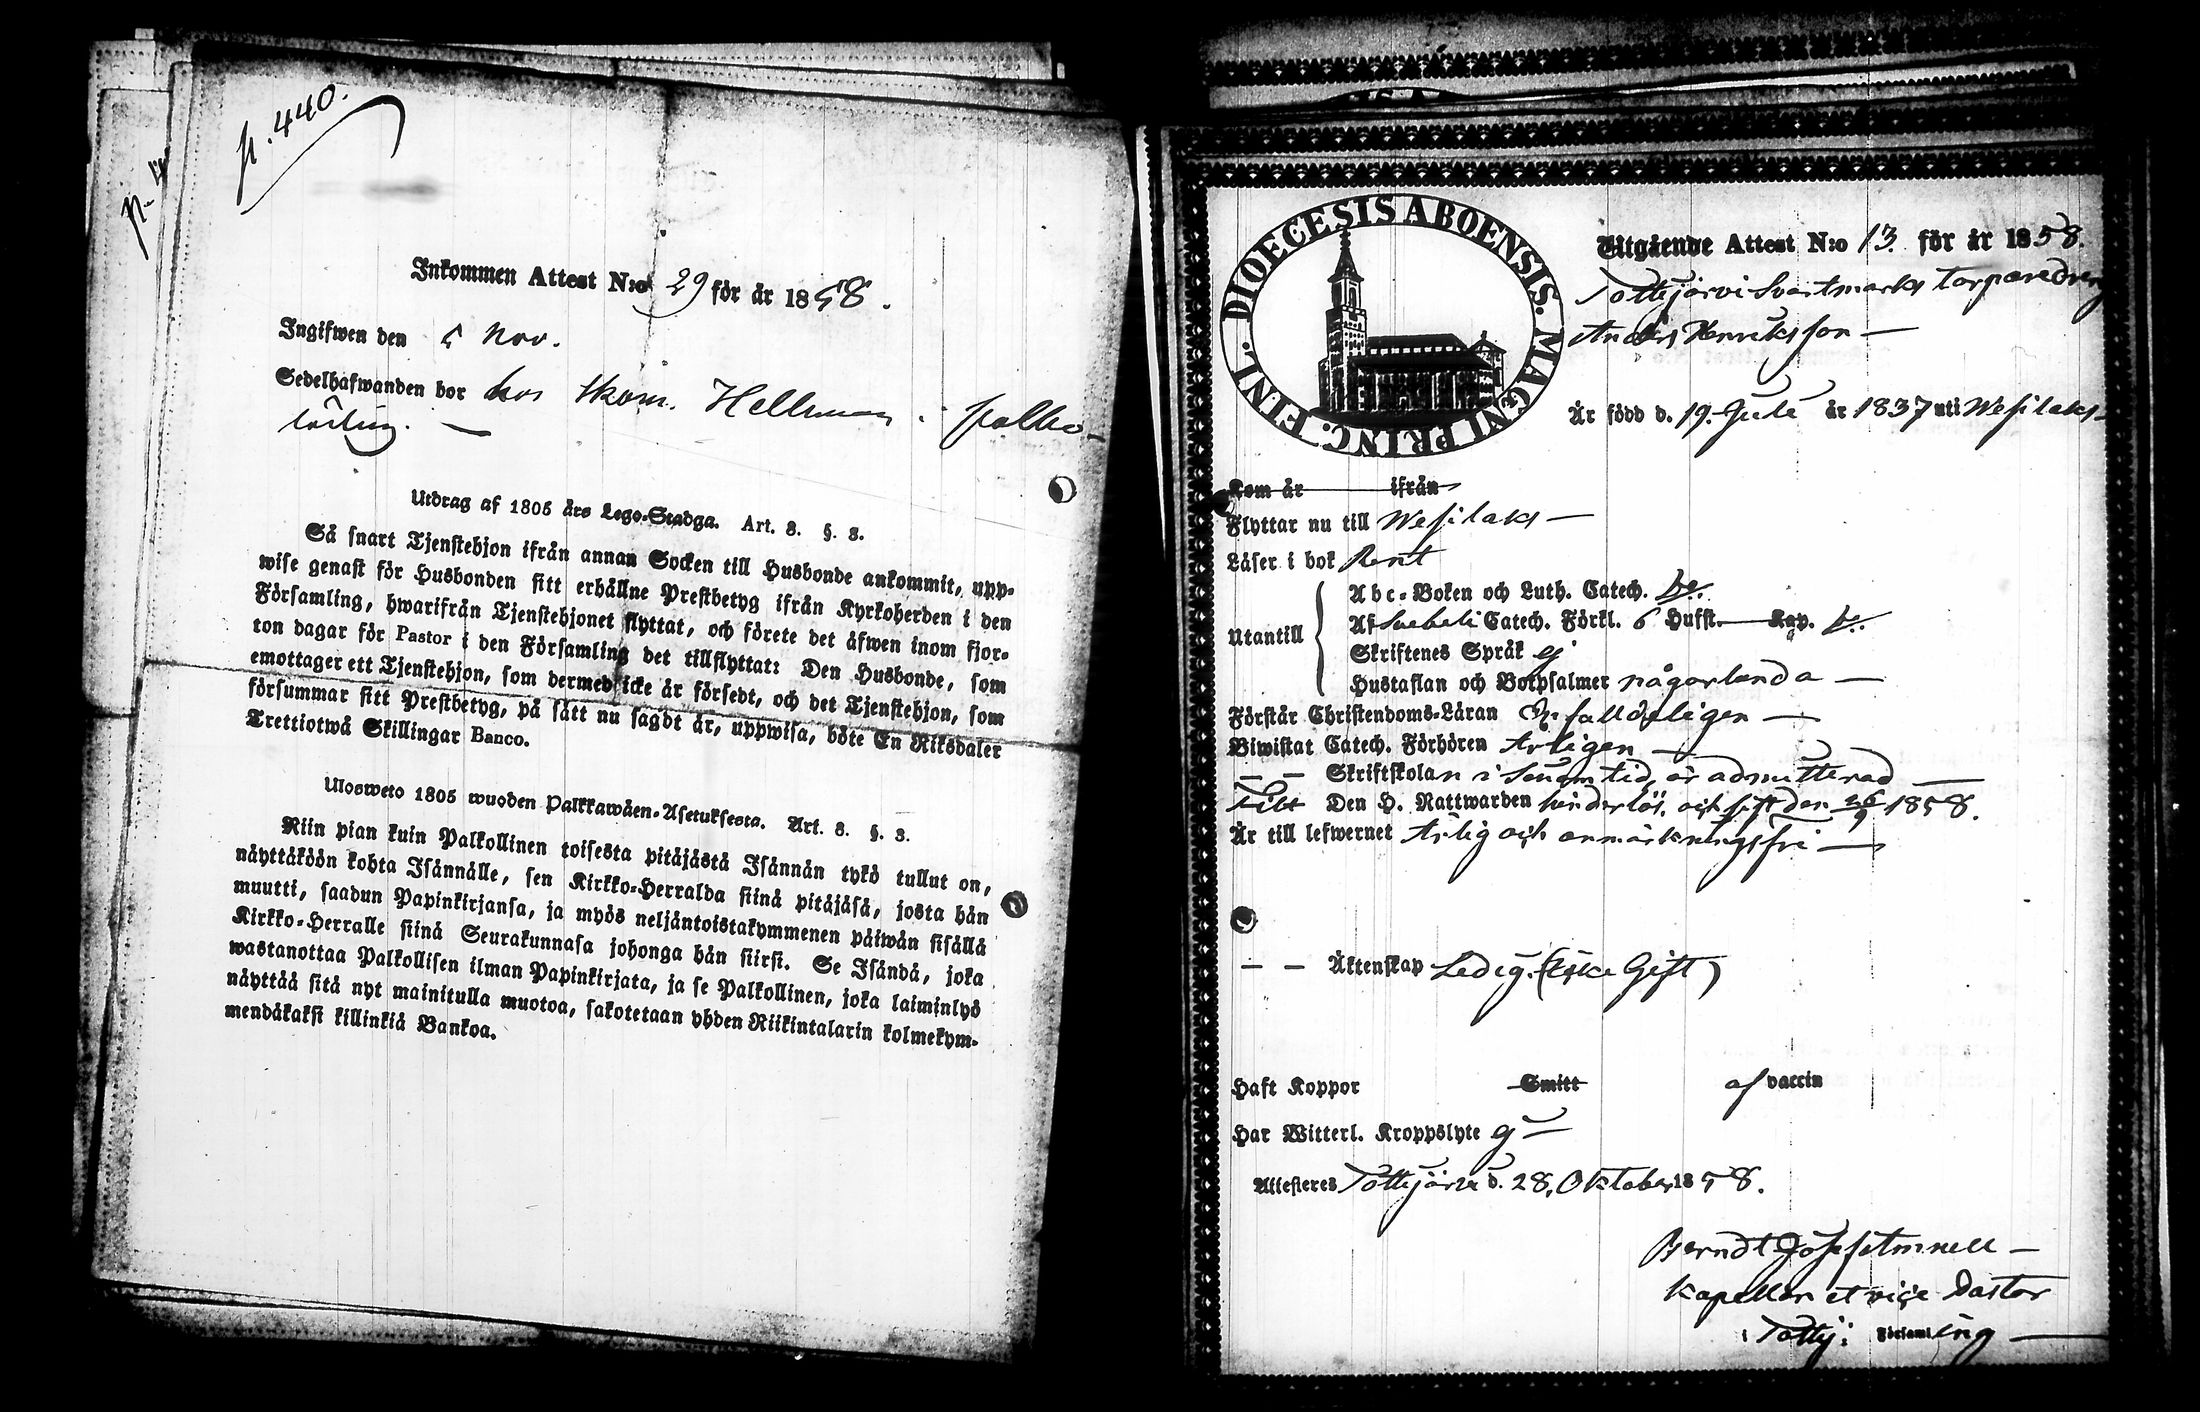 p. 440.
Inkommen Attest N:o 29 för år 1858.
Ingifwen den 5 Nov.
Sedelhafwanden bor hos Skom. Hellman i Palho-
Utdrag af 1805 års Lego-Stadga. Art. 8. §. 3.
Så snart Tjenstehjon ifrån annan Socken till Husbonde ankommit, upp-
wise genast för Husbonden sitt erhållne Prestbetyg ifrån Kyrkoherden i den
Församling, hwarifrån Tjenstehjonet flyttat, och förete det äfwen inom fjor-
ton dagar för Pastor i den Församling det tillflyttat: Den Husbonde, som
emottager ett Tjenstehjon, som dermed icke är försedt, och det Tjenstehjon, som
försummar sitt Prestbetyg, på sätt nu sagdt är, uppwisa, böte En Riksdaler
Trettiotwå Skillingar Banco.
Ulosweto 1805 wuoden Palkkawäen-Asetuksesta. Art. 8. §. 3.
Niin pian kuin Palkollinen toisesta pitäjästä Isännän tykö tullut on,
näyttäköön kohta Isännälle, sen Kirkko-Herralda siinä pitäjäsä, josta hän
muutti, saadun Papinkirjansa, ja myös neljäntoistakymmenen päiwän sisällä
Kirkko-Herralle siinä Seurakunnasa johonga hän siirsi. Se Isändä, joka
wastanottaa Palkollisen ilman Papinkirjata, ja se Palkollinen, joka laiminlyö
näyttää sitä nyt mainitulla muotoa, sakotetaan yhden Riikintalarin kolmekym-
mendäkaksi killinkiä Bankoa.
DIOECESIS ABOENSIS. MAGNI PRINC. FINL.
Utgående Attest N:o 13. för år 1858.
Tottijärvi Svartmarks torparedreng
Anders Henriksson
Är född d. 19. Juli år 1837 uti Wesilaks
Kom år ifrån
Flyttar nu till Wesilaks
Läser i bok Rent
Utantill
Abc-Boken och Luth. Catech. be.
Af Svebeli Catech. Förkl. 6 Hufst. Kap. be.
Skriftenes Språk ej
Hustaflan och Botpsalmer någorlunda
Förstår Christendoms-Läran Enfalldeligen
Biwistat Catech. Förhören Årligen
Skriftskolan i sinom tid, är admitterad
Den H. Nattwarden hinderlös, och sist den 26/9 1858.
Är till lefwernet Ärlig och anmärkningsfri
Äktenskap Ledig. (Icke Gift)
Haft Koppor Smitt af vaccin
Har Witterl. Kroppslyte ej
Attesteres Tottijärvi d. 28. Oktober 1858.
Berndt
Kapellan et vice Pastor
i Tottij: Församling